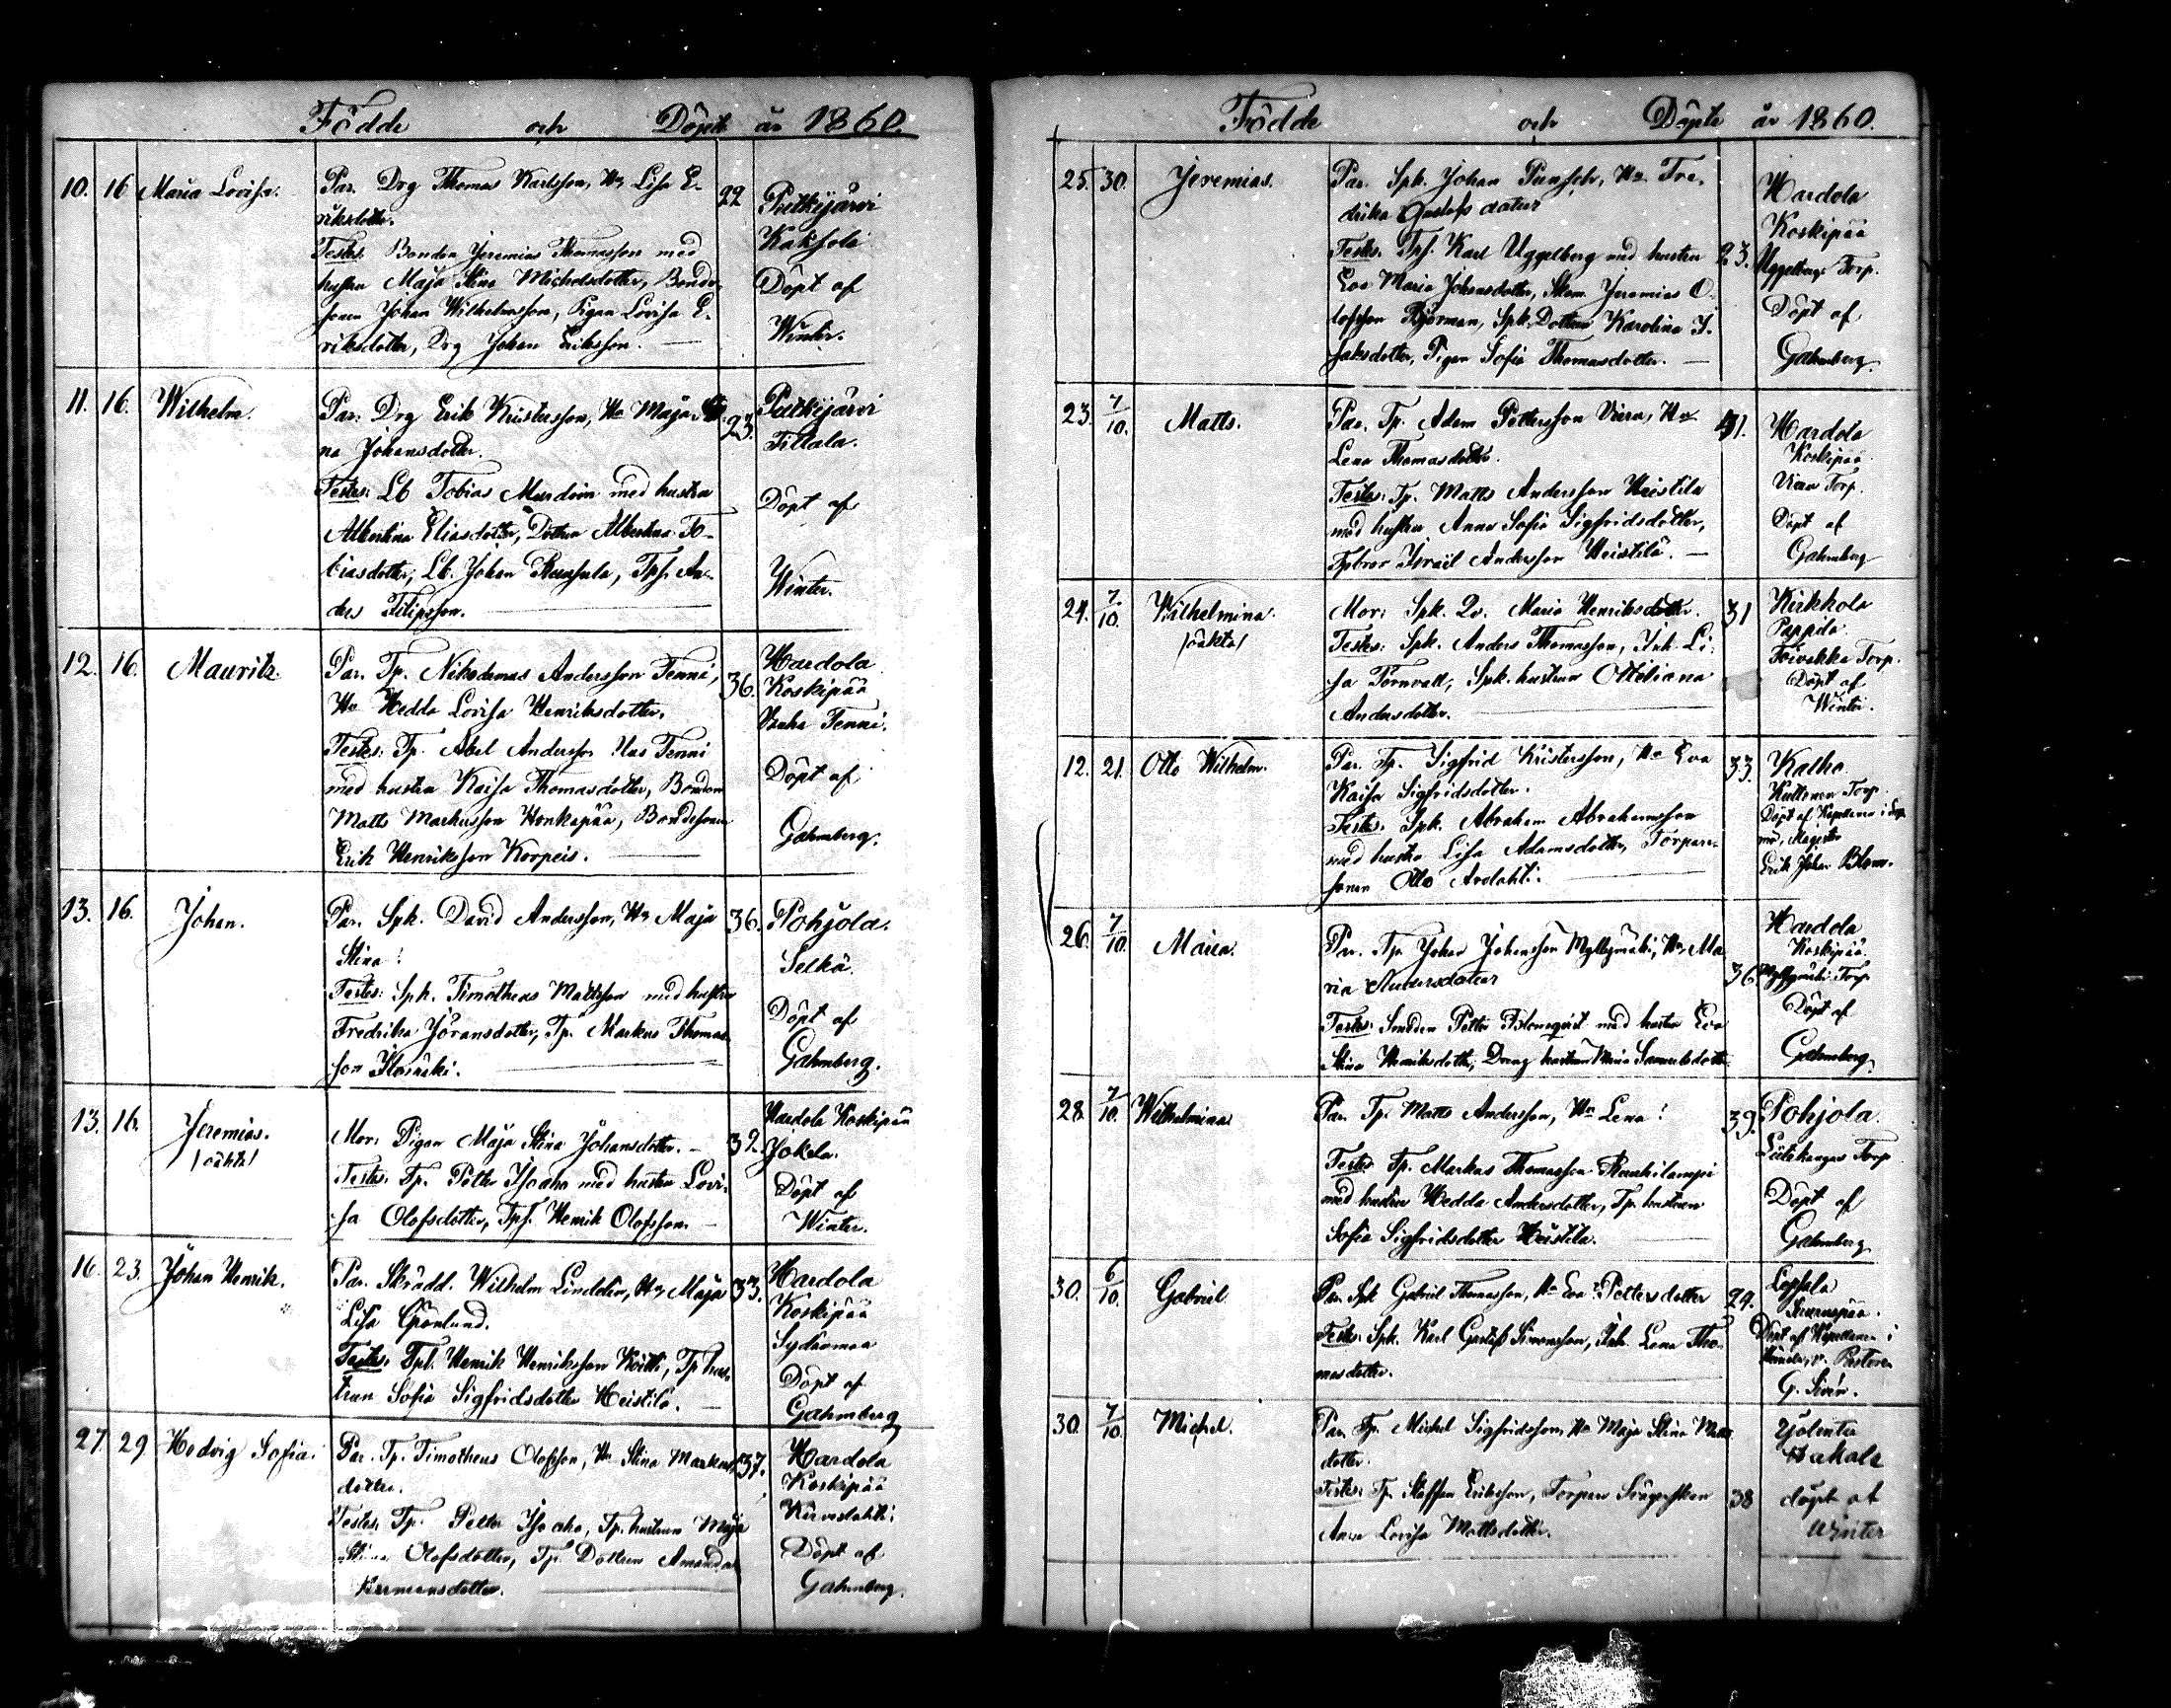 Födde och Döpte år 1860.
10. 16 Maria Lovisa. Par. Drg Thomas Karlsson, Hu Lisa E- 22 Putkijärvi
riksdotter. Kaksola
Testes: Bonden Jeremias Thomasson med Döpt af
hustru Maja Stina Michelsdotter, Bonde- Winter.
sonen Johan Wilhelmsson, Pigan Lovisa E-
riksdotter, Drg Johan Eriksson.
11. 16. Wilhelm. Par. Drg Erik Kristersson, Hu Maja Sti- 23. Putkijärvi
na Johansdotter. Tillala.
Testes: Lb Tobias Murdin med hustru Döpt af
Albertina Eliasdotter, Dottren Albertina To- Winter.
biasdotter, Lb. Johan, Tps. An-
ders Filipsson.
12. 16. Mauritz. Par. Tp. Nikodemus Andersson Tenni, 36. Hardola
Hu Hedda Lovisa Henriksdotter. Koskipää
Testes: Tp. Abel Andersson Uus Tenni Vanha Tenni.
med hustru Kaisa Thomasdotter, Bonden Döpt af
Matts Markusson Honkapää, Bondesonen Gahmberg.
Erik Henriksson Korpeis.
13. 16. Johan. Par. Spk. David Andersson, Hu Maja 36. Pohjola.
Stina! Selkä.
Testes: Spk. Timotheus Mattsson med hustru Döpt af
Fredrika Jöransdotter, Tp. Markus Thomas- Gahmberg.
son
13. 16. Jeremias. Mor: Pigan Maja Stina Johansdotter. 32. Hardola Koskipää
/oäkta/ Testes: Tp. Petter Isoaho med hustru Lovi- Jokela.
sa Olofsdotter, Tps. Henrik Olofsson. Döpt af
Winter.
16. 23. Johan Henrik. Par. Skrädd. Wilhelm Lindelin, Hu Maja 33. Hardola
Lisa Grönlund. Koskipää
Testes: Tpl. Henrik Henriksson Koitti, Tp. hus- Sydänmaa
trun Sofia Sigfridsdotter Heistilä. Döpt af
Gahmberg
27. 29 Hedvig Sofia. Par. Tp. Timotheus Olofsson, Hu Stina Markus- 37. Hardola
dotter. Koskipää
Testes: Tp. Petter Isoaho, Tp. hustrun Maja Döpt af
Stina Olofsdotter, Tp. Dottren Amanda Gahmberg.
Hermansdotter.
Födde och Döpte år 1860.
25. 30. Jeremias. Par. Spk. Johan Punsch, Hu Fre- 23. Hardola
drika Gustafsdotter Koskipää
Testes: Tps. Karl Uggelberg med hustru Uggelbergs Torp.
Eva Maria Johansdotter, Skom. Jeremias O- Döpt af
lofsson Björman, Spk. Dottren Karolina I- Gahmberg.
saksdotter, Pigan Sofia Thomasdotter.
23. 7/10. Matts. Par. Tp. Adam Pettersson Viera, Hu 41. Hardola
Lena Thomasdotter. Koskipää
Testes: Tp. Matts Andersson Heistilä Viera Torp.
med hustru Anna Sofia Sigfridsdotter, Döpt af
Tpbror Israël Andersson Heistilä. Gahmberg
24. 7/10. Wilhelmina. Mor: Spk. Qv. Maria Henriksdotter. 31 Kirkkola
/oäkta/ Testes: Spk. Anders Thomasson, Inh. Li- Pappila
sa Törnvall, Spk. hustrun Otteliana Toivakka Torp.
Andersdotter. Döpt af
Winter.
12. 21. Otto Wilhelm. Par. Tp. Sigfrid Kristersson, Hu Eva 33. Kalho.
Kaisa Sigfridsdotter. Kuttonen Torp.
Testes: Spk. Abraham Abrahamsson Döpt af Kapellanen i
med hustru Lisa Adamsdotter, Torpare- Magister
sonen Otto Erik Johan Blom.
26. 7/10. Maria. Par. Tp. Johan Johansson Myllymäki, Hu Ma- 36 Hardola
ria Andersdotter Koskipää
Testes: Smeden Petter Blomqvist med hustru Eva Myllymäki Torp
Stina Henriksdotter, Dreng hustrun Maria Samuelsdotter Döpt af
Gahmberg.
28. 7/10. Wilhelmina Par. Tp. Matts Andersson, Hu Lena! 39. Pohjola.
Testes: Tp. Markus Thomasson Rauhilampi Torp
med hustru Hedda Andersdotter, Tp. hustrun Döpt af
Sofia Sigfridsdotter Heistilä. Gahmberg
30. 6/10. Gabriel Par. Spk Gabriel Thomasson, Hu Eva Pettersdotter 29.
Testes: Spk. Karl Gustaf Simonsson, Inh. Lena Tho- Döpt af Kapellanen i
masdotter. v. Pastoren
G. Sirén.
30. 7/10. Michel. Par. Tp. Michel Sigfridsson, Hu Maja Stina Matts- Yölintu
dotter. Hakala
Testes: Tp. Staffan Eriksson, Torpare Svägerskan 38 döpt af
Anna Lovisa Mattsdotter. Winter